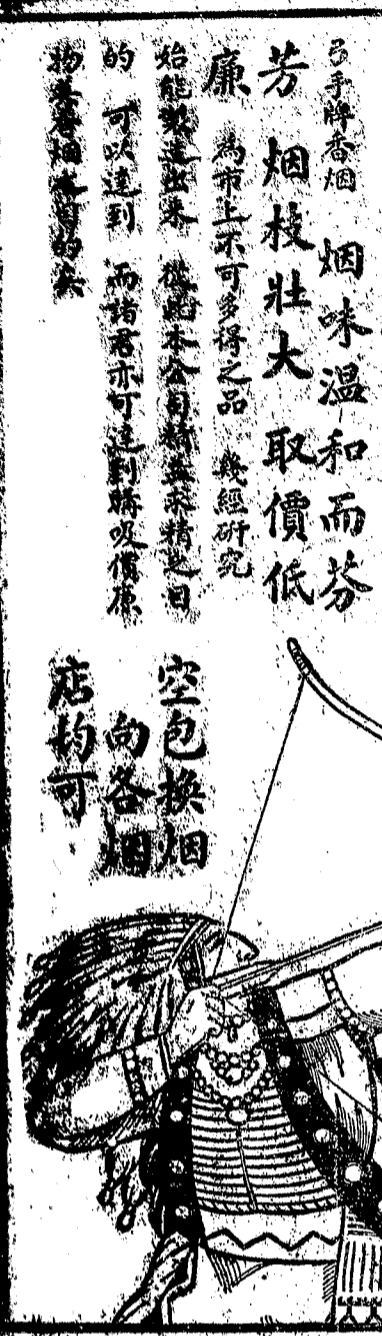 弓手牌香烟 烟味温和而芬
芳 烟枝壯大 取價低
廉 為市上不可多得之品 幾經研究
始能製造出來 從此本公司精益求精之目
的 可以達到 而諸君亦可達到購吸價廉
物美香烟之目的矣
空包換烟
向各烟
店均可